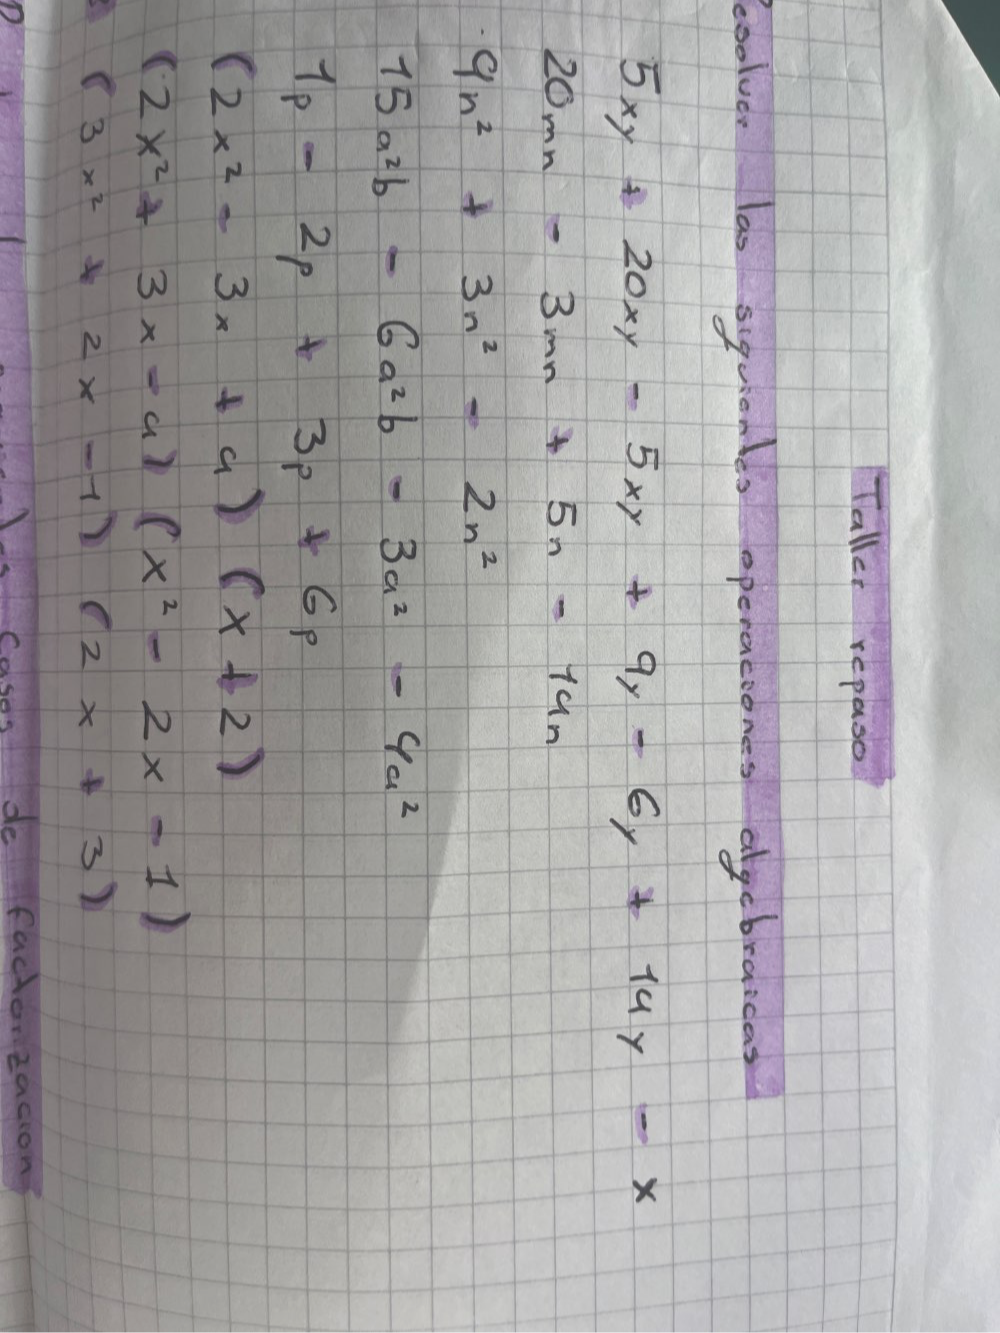 Taller repaso
esolver las siguientes operaciones algebraicas
5xy + 20xy - 5xy + 9y - 6y + 14y - x
20mn - 3mn + 5n - 14n
9n² + 3n² - 2n²
15a²b - 6a²b - 3a² - 9a²
1p - 2p + 3p + 6p
(2x² - 3x + 4) (x + 2)
(2x² + 3x - 4) (x² - 2x - 1)
(3x² + 2x - 1) (2x + 3)
casos de factorización